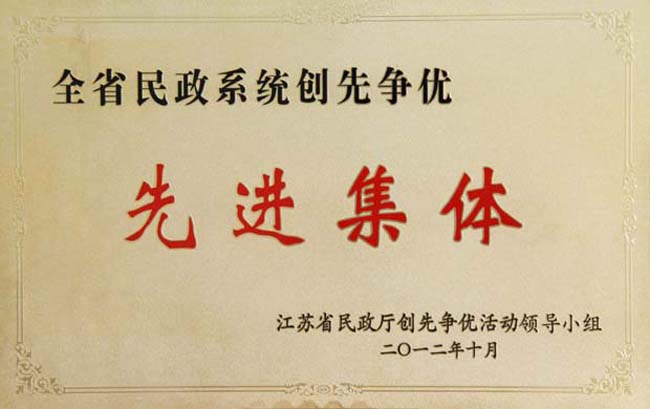 全省民政系统创先争优
先进集体
江苏省民政厅创先争优活动领导小组
二〇一二年十月